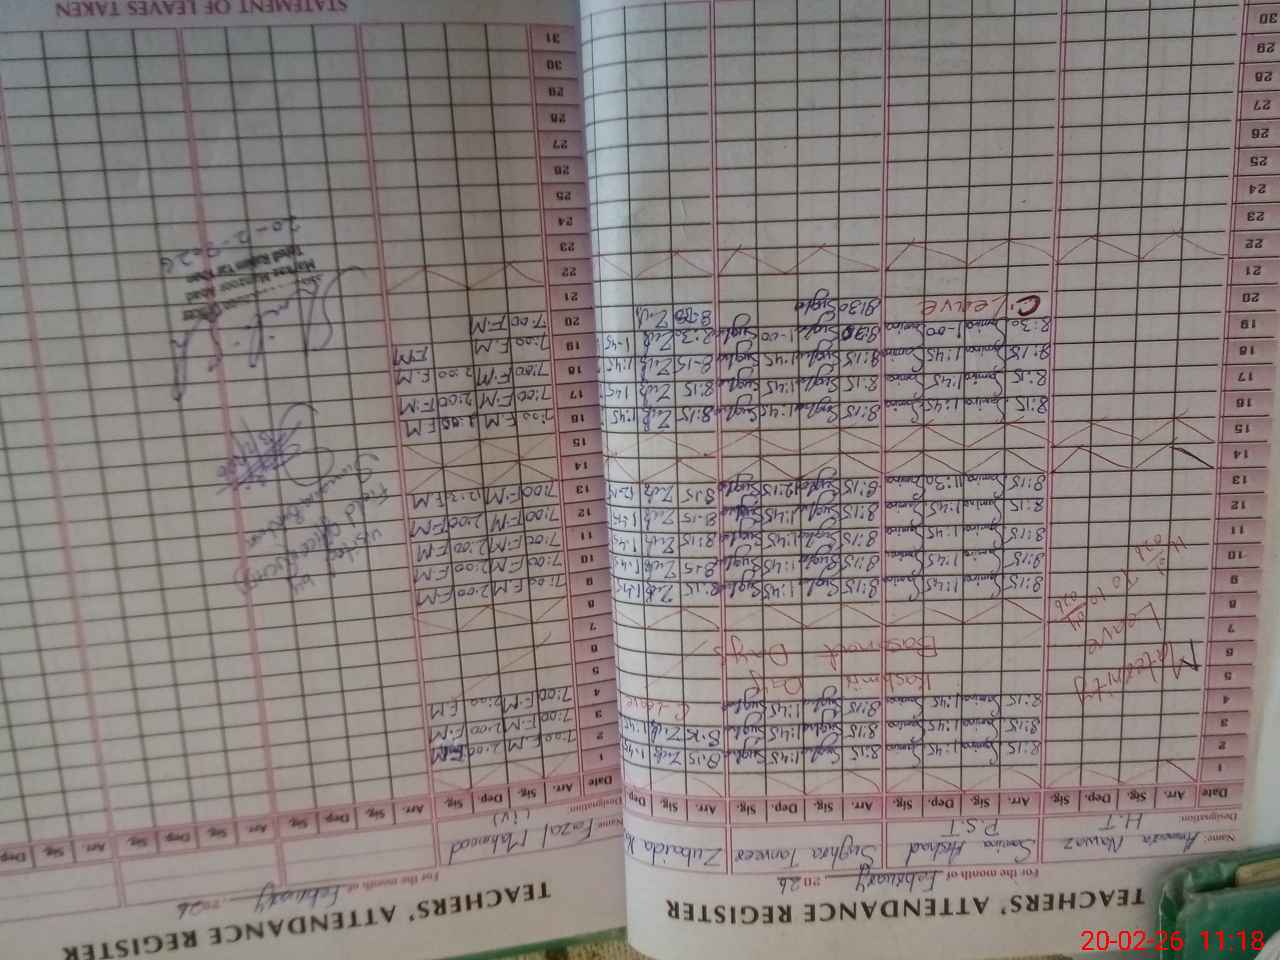 TEACHERS' ATTENDANCE REGISTER
For the month of February 2026
Name: Nawaz
Samina Arshad
Sughra Tanveer
Zubaida
Designation: H.T
P.S.T
Date Arr. Sig. Dep. Sig. Arr. Sig. Dep. Sig. Arr. Sig. Dep. Sig. Arr. Sig. Dep.
1
2 8:15 Samina 1:45 Samina 8:15 Sughra 1:45 Sughra 8:15 Zub 1:45
3 8:15 Samina 1:45 Samina 8:15 Sughra 1:45 Sughra 8:15 Zub 1:45
4 8:15 Samina 1:45 Samina 8:15 Sughra 1:45 Sughra C Leave
5 Kashmir Day
6 Basant Days
7
8
Maternity
Leave
9 8:15 Samina 1:45 Samina 8:15 Sughra 1:45 Sughra 8:15 Zub 1:45
10 8:15 Samina 1:45 Samina 8:15 Sughra 1:45 Sughra 8:15 Zub 1:45
11 8:15 Samina 1:45 Samina 8:15 Sughra 1:45 Sughra 8:15 Zub 1:45
12 8:15 Samina 1:45 Samina 8:15 Sughra 1:45 Sughra 8:15 Zub 1:45
13 8:15 Samina 11:30 Samina 8:15 Sughra 12:15 Sughra 8:15 Zub 12:15
14
15
16 8:15 Samina 1:45 Samina 8:15 Sughra 1:45 Sughra 8:15 Zub 1:45
17 8:15 Samina 1:45 Samina 8:15 Sughra 1:45 Sughra 8:15 Zub 1:45
18 8:15 Samina 1:45 Samina 8:15 Sughra 1:45 Sughra 8:15 Zub 1:45
19 8:30 Samina 1:00 Samina 8:30 Sughra 1:00 Sughra 8:30 Zub 1:45
20 C. Leave 8:30 Sughra 8:30 Zub
21
22
23
24
25
26
27
28
29
30
TEACHERS' ATTENDANCE REGISTER
For the month of February 2026
Name: Fazal Mahmood
Designation: (iv)
Date Arr. Sig. Dep. Sig. Arr. Sig. Dep. Sig. Arr. Sig. Dep. Sig. Arr. Sig. Dep.
1
2 7:00 F.M 2:00 F.M
3 7:00 F.M 2:00 F.M
4 7:00 F.M 2:00 F.M
5
6
7
8
9 7:00 F.M 2:00 F.M
10 7:00 F.M 2:00 F.M
11 7:00 F.M 2:00 F.M
12 7:00 F.M 2:00 F.M
13 7:00 F.M 12:3 F.M
14
15
16 7:00 F.M F.M
17 7:00 F.M 2:00 F.M
18 7:00 F.M 2:00 F.M
19 7:00 F.M F.M
20 7:00 F.M
21
22
23
24
25
26
27
28
29
30
31
visited by
20-2-2026
STATEMENT OF LEAVES TAKEN
20-02-26 11:18